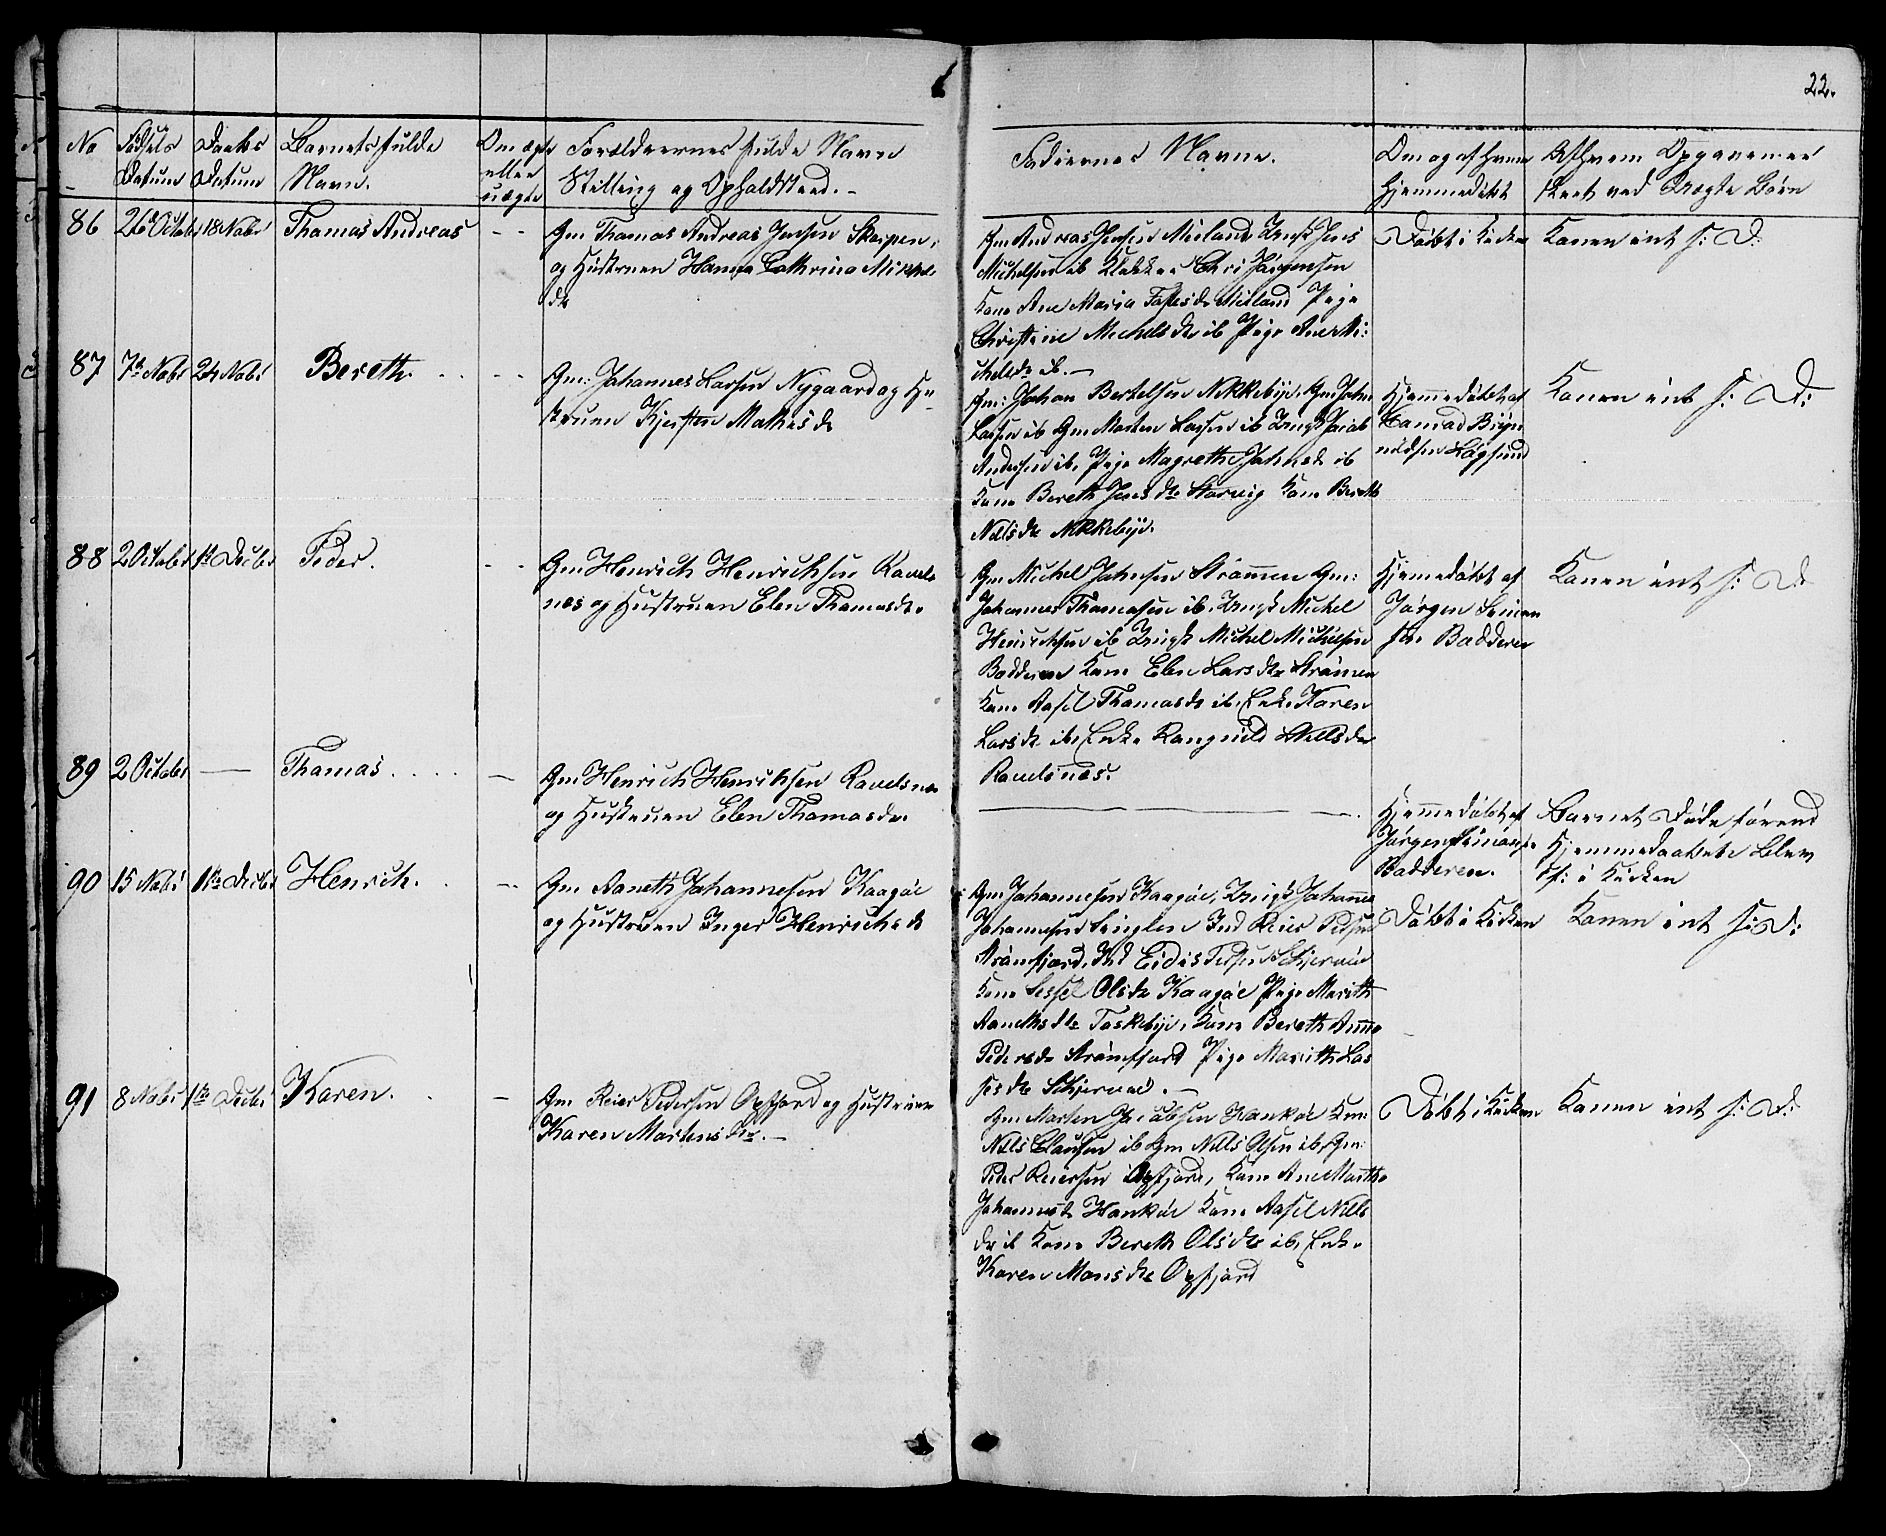 22.
No
Fødsels Datum
Daabs Datum
Barnets fulde Navn.
Om ægte eller uægte
Forældrernes fulde Navn
Stilling og Opholdsted. -
Faddernes Navne.
Om og af hvem
Hjemmedøbt
Af hvem Opgaven er
skeet ved Uægte Børn
86 26 Octobr 18 Nobr Thomas Andreas - -
Gm Thomas Andreas Jensen Skorpen,
og Hustruen Hanna Cathrina Mikkels
dr
Gm Andreas Jensen Meiland Ungk Jens
Michelsen ib Klokker Chri Jørgensen
Kone Ane Maria dr Meiland Pige
Christine Michelsdr ib Pige Ane Mi-
chelsdr ib. -
Døbt i Kirken
Konen int s: D:
87 7de Nobr 24 Nobr Bereth. . . - -
Gm: Johannes Larsen Nygaard og Hu-
struen Kjersten Mathisdr
Gm: Johan Bertelsen Nikkebye, Gm John
Larsen ib Gm Morten Larsen ib Ungk Jacob
Andersen ib, Pige Magrethe Johnsdr ib
Kone Bereth Jensdtr Storvig Kone Bereth
Nilsdr Nikkebye.
Hjemmedøbt af
Conrad Bryn
nildsen Løgsund
Konen int s: D:
88 2 Octobr 1te Decbr Peder. - -
Gm Henrich Henrichsen Ravels
næs og Hustruen Elen Thomasdr.
Gm Michel Johnsen Strømmen Gm:
Johannes Thomasen ib, Ungk Michel
Henrichsen ib Ungk Michel Michelsen
Badderen Kone Elen Larsdtr Strømen
Kone Aasel Thomasdr ib, Enke Karen
Larsdr ib, Enke Rangnild Nilsdr
Ravelsnæs.
Hjemmedøbt af
Jørgen Simon
sen Badderen
Konen int s: D:
89 2 Octobr — Thomas. . . . —
Gm Henrich Henrichsen Ravelsnæs
og Hustruen Elen Thomasdr.
Hjemmedøbt af
Jørgen Simonsen
Badderen.
Barnet Døde førend
Hjemmedaaben blev
i Kirken
90 15 Nobr 1te Decbr Henrich. . - -
Gm Aaneth Johannesen Kaagøe
og Hustruen Inger Henrichsdr
Gm Johannesen Kaagøe, Ungk Johannes
Johannesen Ind Reier Pedsen
Strømfjord, Ind Pedsen Schjervøe
Kone Sessel Olsdr Kaagøe Pige Marith
Aanethsdtr Taskebye, Kone Bereth Anna
Pedersdr Strømfjord Pige Marith Las
sesdtr Schjervøe. -
Døbt i Kirken
Konen int s: D:
91 8 Nobr 1te Decbr Karen. . —
Gm Reier Pedersen Oxfjord og Hustruen
Karen Mortensdtr. -
Gm Morten Jacobsen Haukøe Gm:
Nils Clausen ib Gm Nils Olsen ib, Gm:
Peder Reiersen Oxfjord, Kone Ane Martha
Johannesdr Haukøe Kone Aasel Nils
dr ib Kone Bereth Olsdtr ib, Enke
Karen Monsdtr Oxfjord
Døbt i Kirken
Konen int s: D: